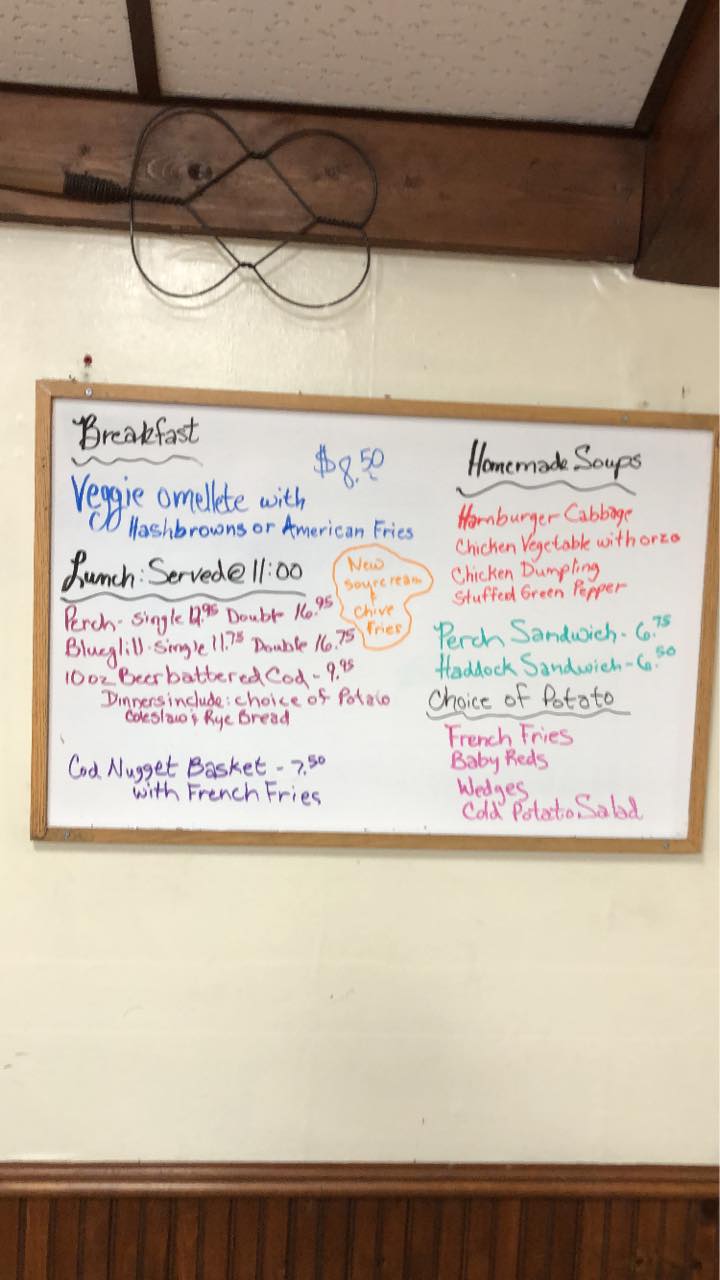 Breakfast
$8.50
Veggie omellete with
Hashbrowns or American Fries
Lunch: Served @ 11:00
Perch - Single 12.95 Double 16.95
Bluegill - Single 11.75 Double 16.75
10 oz Beer battered Cod - 9.95
Dinners include: choice of Potato
Coleslaw & Rye Bread
Cod Nugget Basket - 7.50
with French Fries
New
sourcream
&
chive
Fries
Homemade Soups
Hamburger Cabbage
Chicken Vegetable with orzo
Chicken Dumpling
Stuffed Green Pepper
Perch Sandwich - 6.75
Haddock Sandwich - 6.50
Choice of Potato
French Fries
Baby Reds
Wedges
Cold Potato Salad